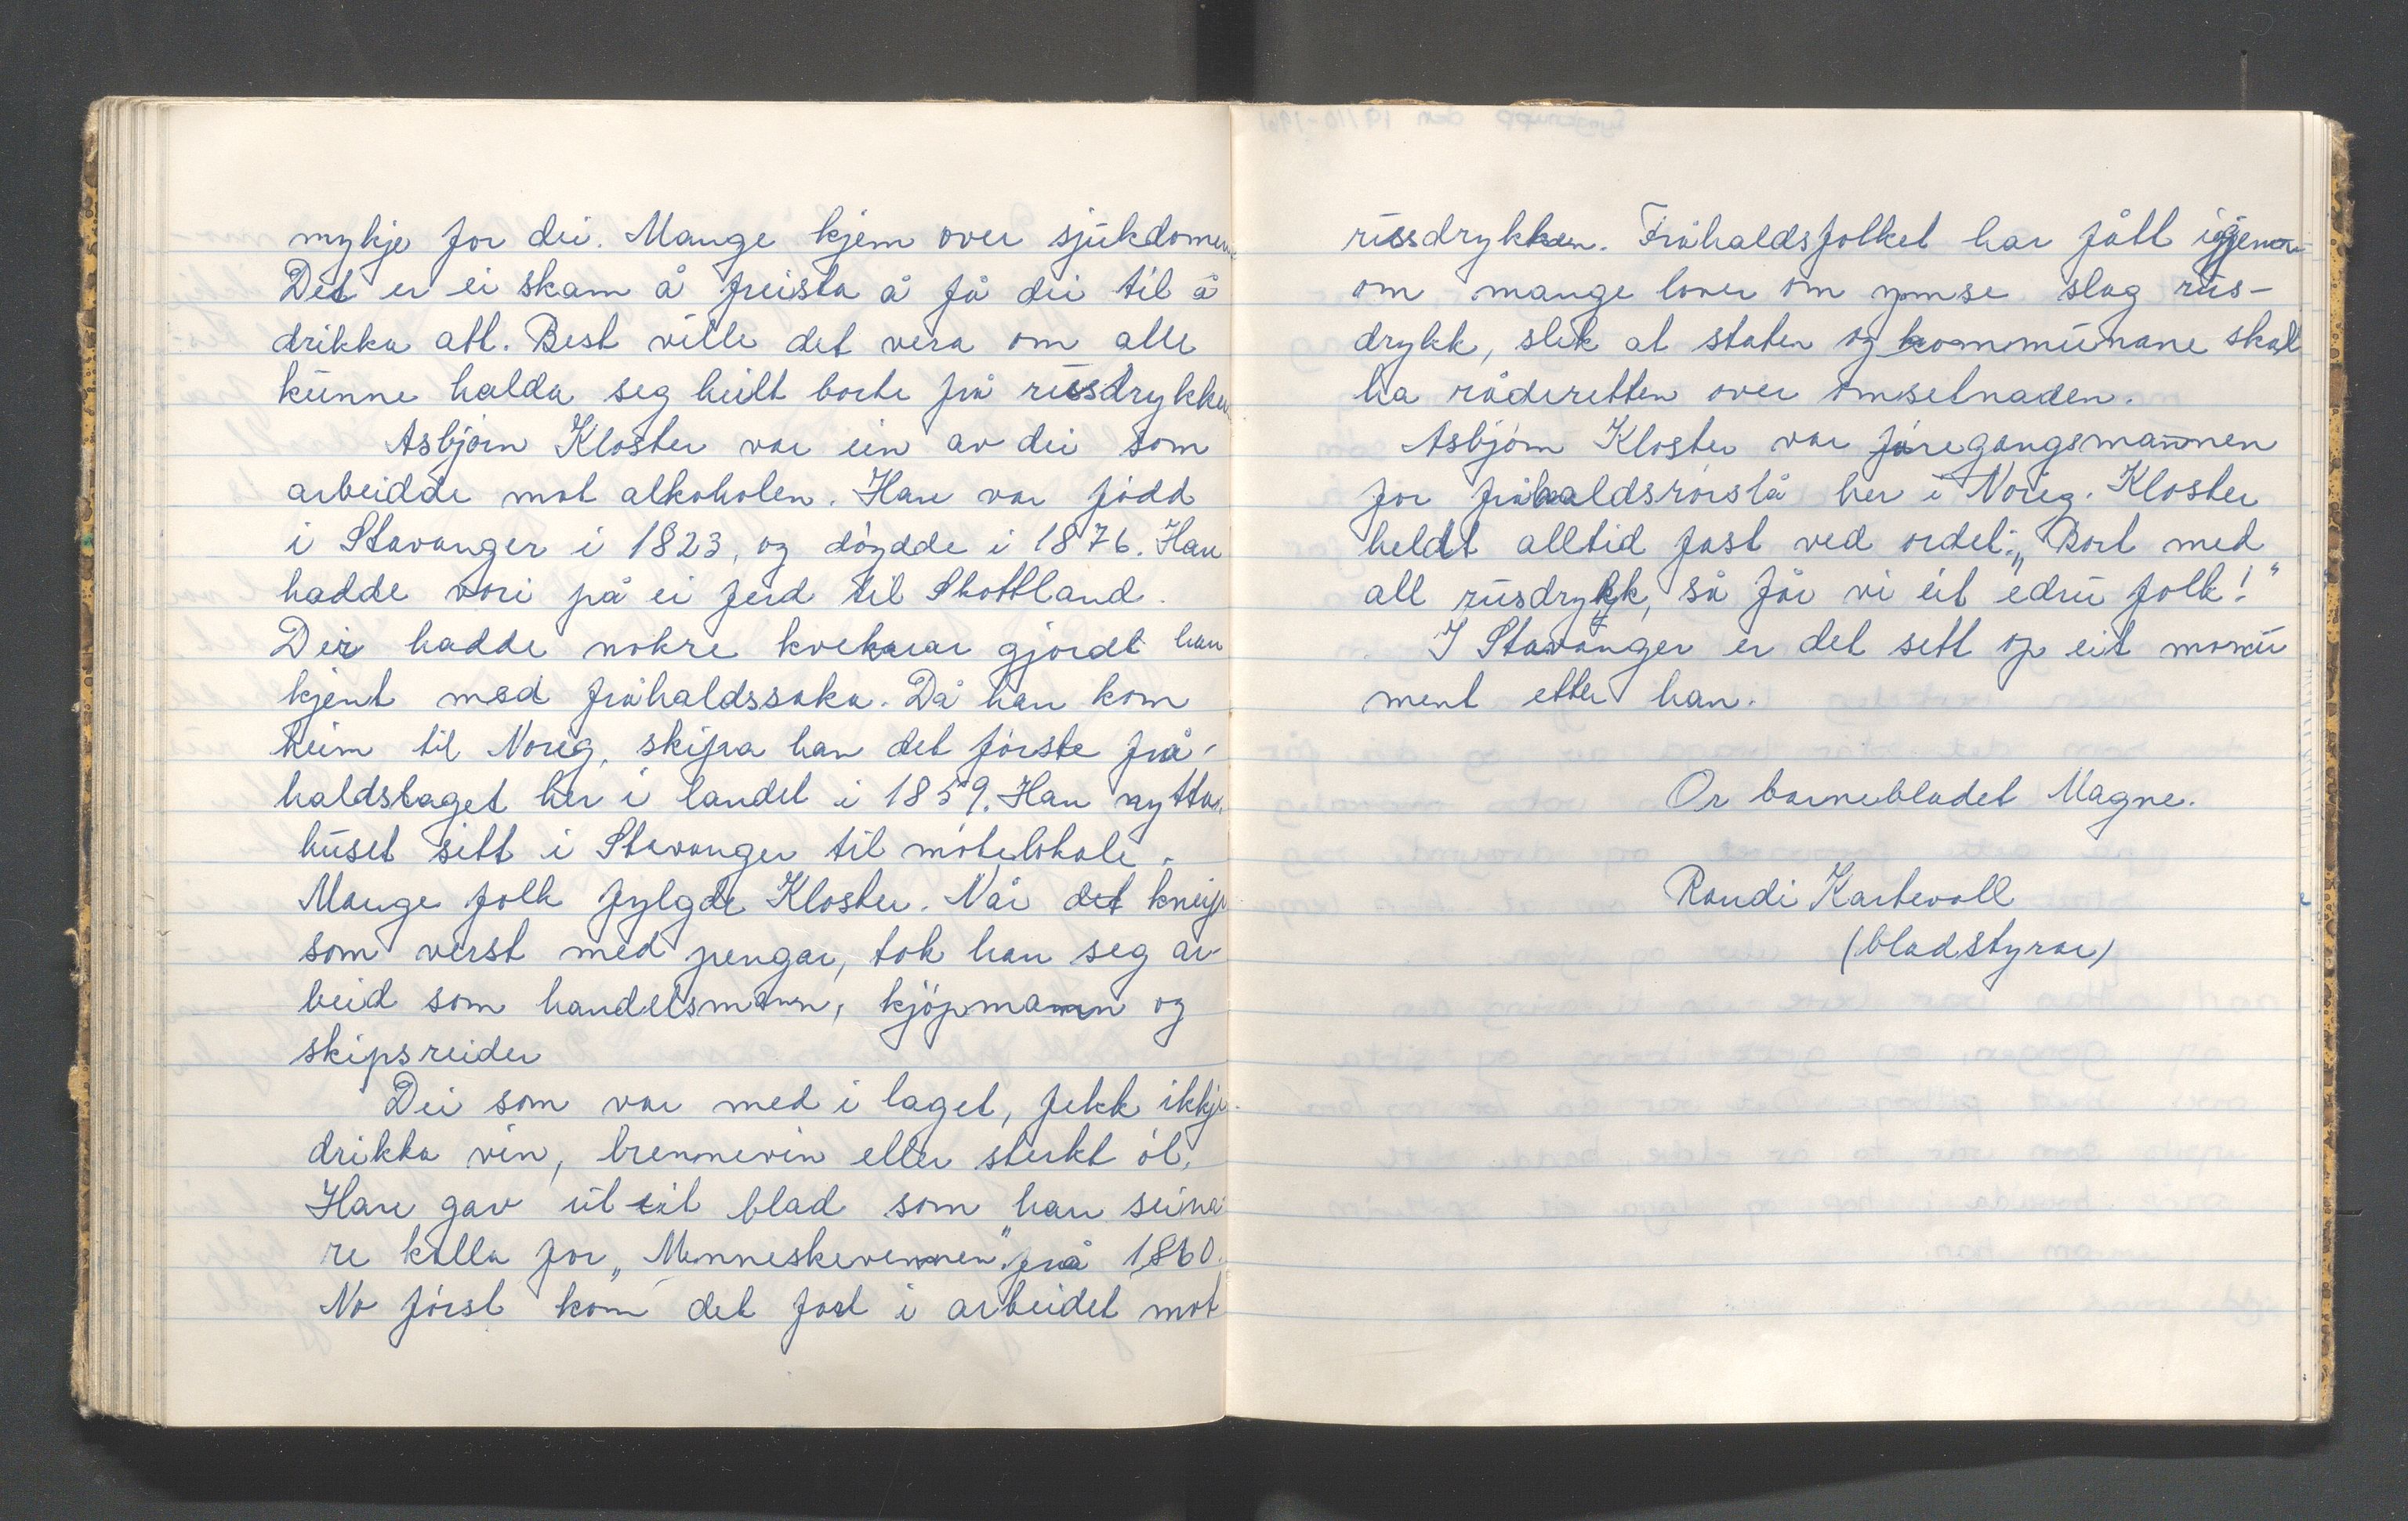 mykje for dei. Mange kjem over sjukdomen
Det er ei skam å freista å få dei til å
drikka att. Best ville det vera om alle
kunne halda seg heilt borte frå rusdrykken
Asbjørn Kloster var ein av dei som
arbeidde mot alkoholen. Han var fødd
i Stavanger i 1823, og døydde i 1876. Han
hadde vori på ei ferd til Skottland.
Der hadde nokre kvekarar gjordt han
kjent med fråhaldssaka. Då han kom
heim til Noreg, skipa han det første frå-
haldslaget her i landet i 1859. Han nytta
huset sitt i Stavanger til møtelokale.
Mange folk fylgde Kloster. Når det kneip
som verst med pengar, tok han seg ar-
beid som handelsmann, kjøpmann og
skipsreider
Dei som var med i laget, fekk ikkje
drikka vin, brennevin eller sterkt øl.
Han gav ut eit blad som han seina
re kalla for „Menneskevennen" frå 1860.
No først kom det fart i arbeidet mot
rusdrykken. Fråhaldsfolket har fått igjenom
om mange lover om ymse slag rus-
drykk, slik at staten og kommunane skal
ha råderetten over omsetnaden.
Asbjørn Kloster var føregangsmannen
for fråhaldsrørsla her i Noreg. Kloster
heldt alltid fast ved ordet: „Bort med
all rusdrykk, så får vi eit edru folk!"
I Stavanger er det sett op eit monu
ment etter han.
Or barnebladet Magne.
Randi Kartevoll
(bladstyrar)